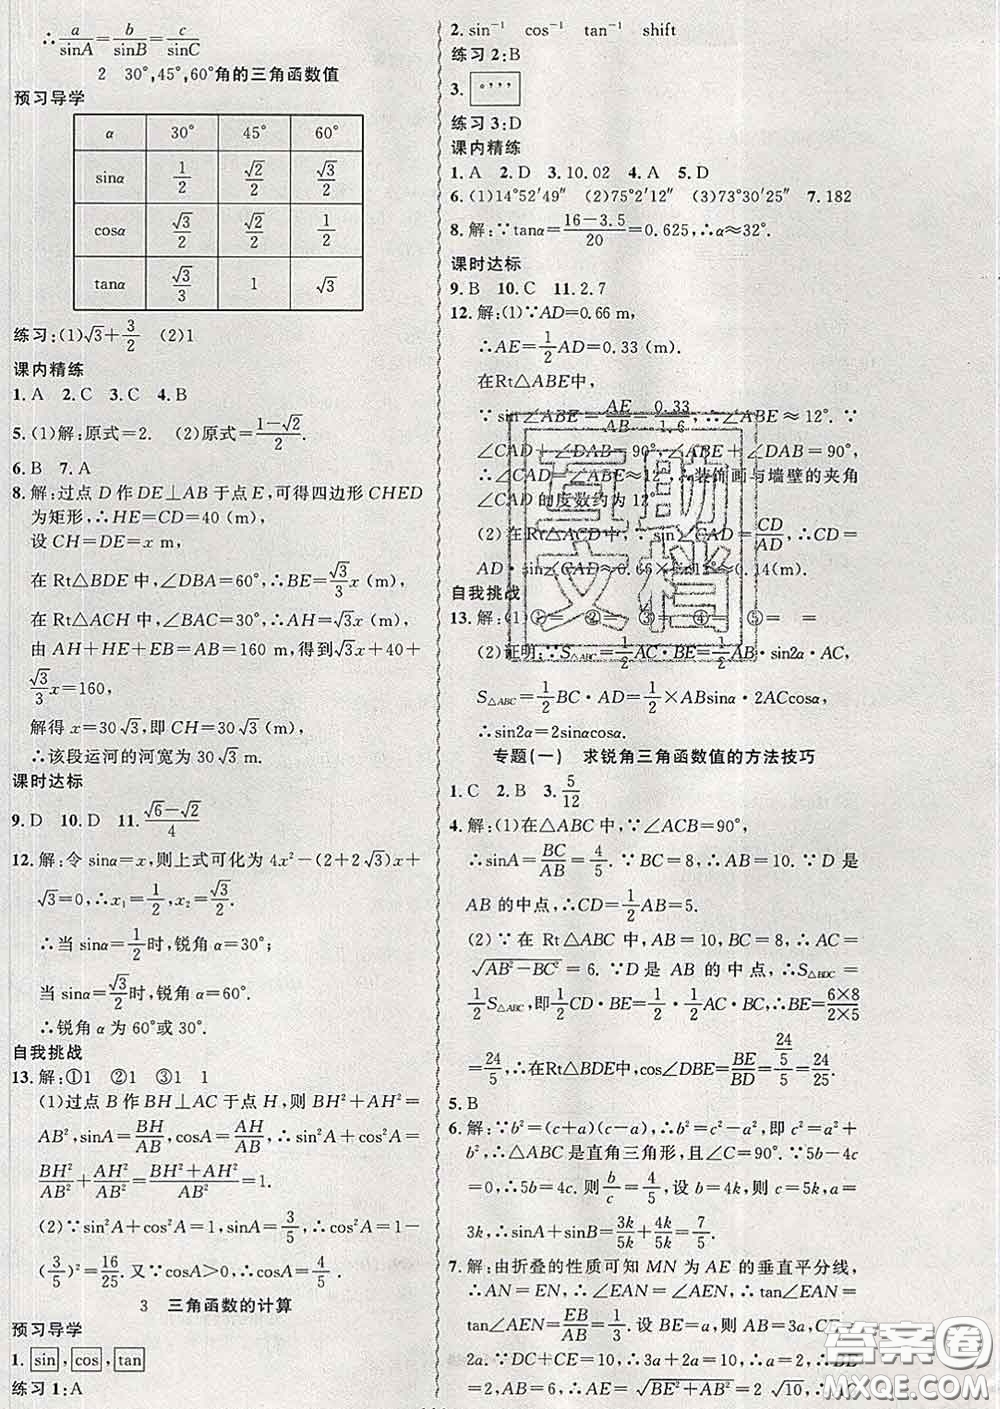 ∴a/sinA=b/sinB=c/sinC
2 30°,45°,60°角的三角函数值
预习导学
α 30° 45° 60°
sinα 1/2 √2/2 √3/2
cosα √3/2 √2/2 1/2
tanα √3/3 1 √3
练习:(1)√3+3/2 (2)1
课内精练
1.A 2.C 3.C 4.B
5.(1)解:原式=2. (2)原式=(1-√2)/2.
6.B 7.A
8.解:过点D作DE⊥AB于点E,可得四边形CHED
为矩形,∴HE=CD=40(m),
设CH=DE=x m,
在Rt△BDE中,∠DBA=60°,∴BE=√3/3 x(m),
在Rt△ACH中,∠BAC=30°,∴AH=√3x(m),
由AH+HE+EB=AB=160 m,得到√3x+40+
√3/3 x=160,
解得x=30√3,即CH=30√3(m),
∴该段运河的河宽为30√3 m.
课时达标
9.D 10.D 11.(√6-√2)/4
12.解:令sinα=x,则上式可化为4x²-(2+2√3)x+
√3=0,∴x₁=1/2,x₂=√3/2.
∴当sinα=1/2时,锐角α=30°;
当sinα=√3/2时,锐角α=60°.
∴锐角α为60°或30°.
自我挑战
13.解:①1 ②1 ③1 1
(1)过点B作BH⊥AC于点H,则BH²+AH²=
AB²,sinA=BH/AB,cosA=AH/AB,∴sin²A+cos²A=
BH²/AB²+AH²/AB²=(BH²+AH²)/AB²=1.
(2)∵sin²A+cos²A=1,sinA=3/5,∴cos²A=1-
(3/5)²=16/25.又∵cosA>0,∴cosA=4/5.
3 三角函数的计算
预习导学
1.sin,cos,tan
练习1:A
2.sin⁻¹ cos⁻¹ tan⁻¹ shift
练习2:B
3.°’”
练习3:D
课内精练
1.A 2.D 3.10.02 4.A 5.D
6.(1)14°52′49″ (2)75°2′12″ (3)73°30′25″ 7.182
8.解:∵tanα=(16-3.5)/20=0.625,∴α≈32°.
课时达标
9.B 10.C 11.2.7
12.解:(1)∵AD=0.66 m,
∴AE=1/2AD=0.33(m).
在Rt△ABE中,
∵sin∠ABE=AE/AB=0.33/1.6,∴∠ABE≈12°.∵
∠CAD+∠DAB=90°,∠ABE+∠DAB=90°,
∴∠CAD=∠ABE≈12°.∴装饰画与墙壁的夹角
∠CAD的度数约为12°.
(2)在Rt△ACD中,∵sin∠CAD=CD/AD,∴CD=
AD·sin∠CAD≈0.66×sin12°≈0.14(m).
自我挑战
13.解:(1)①= ②= ③= ④= ⑤= =
(2)证明:∵S△ABC=1/2AC·BE=1/2AB·sin2α·AC,
S△ABC=1/2BC·AD=1/2×ABsinα·2ACcosα,
∴sin2α=2sinαcosα.
专题(一) 求锐角三角函数值的方法技巧
1.C 2.B 3.5/12
4.解:(1)在△ABC中,∵∠ACB=90°,
∴sinA=BC/AB=4/5.∵BC=8,∴AB=10.∵D是
AB的中点,∴CD=1/2AB=5.
(2)∵在Rt△ABC中,AB=10,BC=8,∴AC=
√(AB²-BC²)=6.∵D是AB的中点,∴S△BDC=
1/2S△ABC,即1/2CD·BE=1/2·1/2AC·BC,∴BE=(6×8)/(2×5)
=24/5,∴在Rt△BDE中,cos∠DBE=BE/BD=(24/5)/5=24/25.
5.B
6.解:∵b²=(c+a)(c-a),∴b²=c²-a²,即c²=a²+
b²,∴△ABC是直角三角形,且∠C=90°.∵5b-4c
=0,∴5b=4c.则b/c=4/5,设b=4k,c=5k,则a=
3k,∴sinA+sinB=3k/5k+4k/5k=7/5.
7.解:由折叠的性质可知MN为AE的垂直平分线,
∴AN=EN,∴∠EAN=∠AEN,∴tan∠AEN=
tan∠EAN=EB/AB=1/3,∴设BE=a,AB=3a,∴CE=
2a.∵DC+CE=10,∴3a+2a=10,∴a=2,∴BE
=2,AB=6,∴AE=√(BE²+AB²)=2√10,
互助
文档
答案圈
MXQE.COM